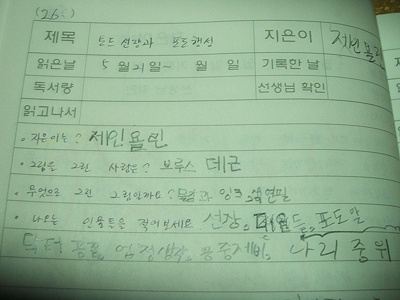 (26)
제목 토드 선장과 포도행성 지은이 제인 욜런
읽은날 5월 21일~ 월 일 기록한 날
독서량 선생님 확인
읽고나서
• 지은이는? 제인욜런
• 그림을 그린 사람은? 브루스 데근
• 무엇으로 그린 그림인가요? 물감과 잉크, 색연필
• 나오는 인물들을 적어보세요 선장, 포도알
닥터 공중제비, 나리 중위